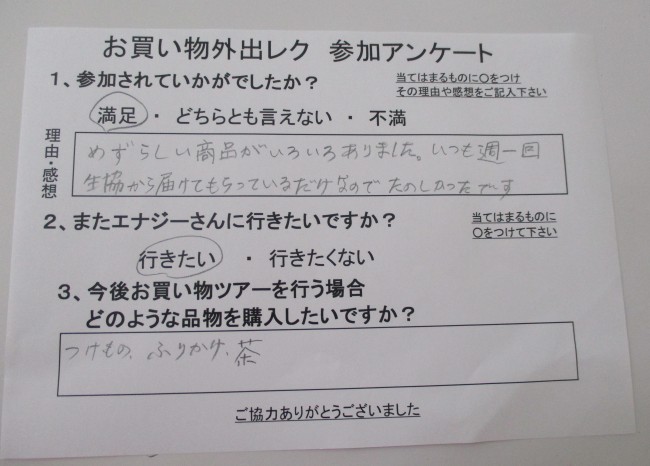 お買い物外出レク 参加アンケート
1、参加されていかがでしたか？
当てはまるものに〇をつけ
その理由や感想をご記入下さい
満足 ・ どちらとも言えない ・ 不満
理由・感想
めずらしい商品がいろいろありました。いつも週一回
生協から届けてもらっているだけなので たのしかったです
2、またエナジーさんに行きたいですか？
当てはまるものに
〇をつけて下さい
行きたい ・ 行きたくない
3、今後お買い物ツアーを行う場合
どのような品物を購入したいですか？
つけもの、ふりかけ、茶
ご協力ありがとうございました